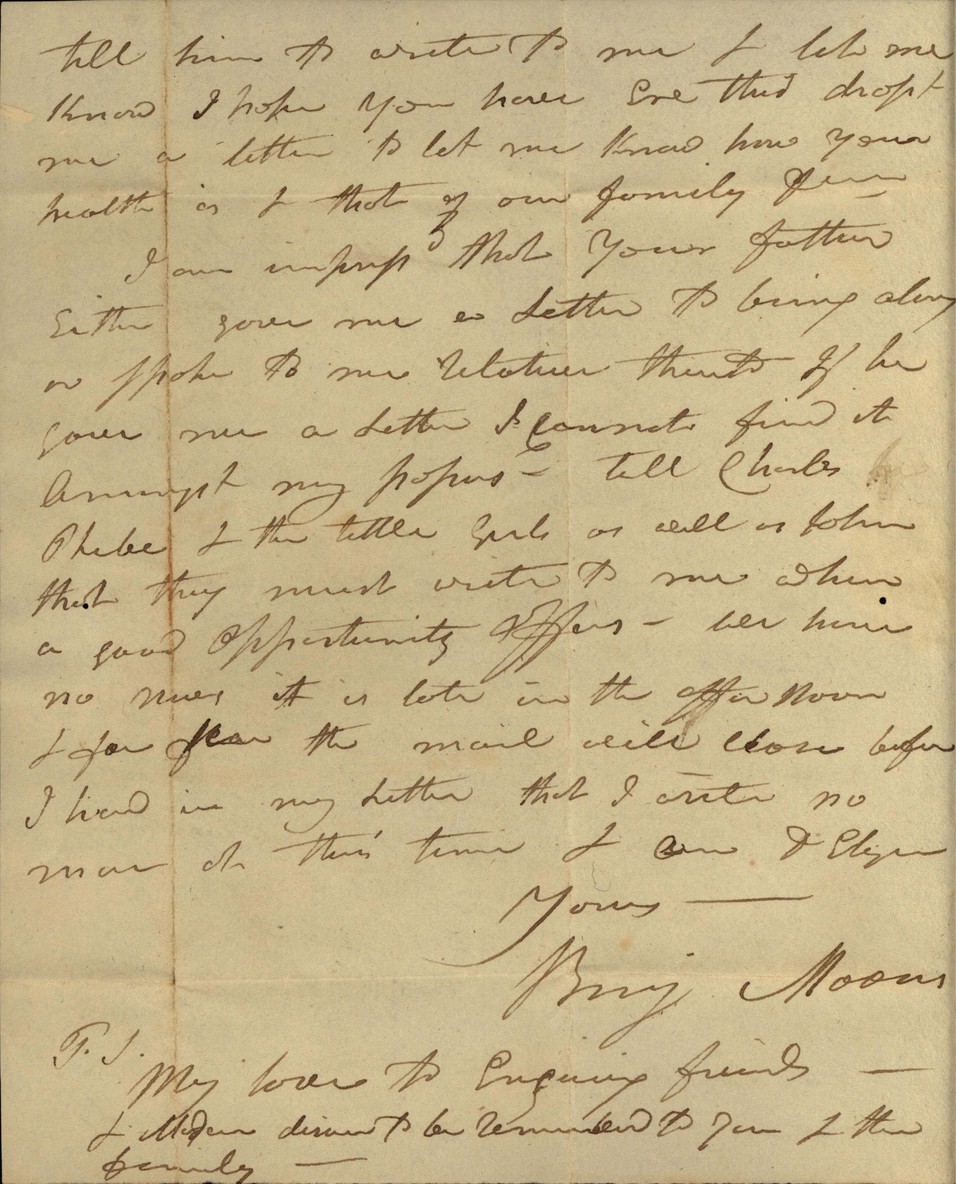 tell him to write to me & let me
Know I hope You have Ere this dropt
me a letter to let me Know how Your
health is & that of our family
I am imprest that Your father
Either gave me a Letter to bring along
or spoke to me relative thereto If he
gave me a Letter I Cannot find it
Amongst my papers – tell Charles
Phebe & the little Girls as well as John
that they must write to me when
a good Opportunity Offers – we have
no news it is late in the afternoon
& for fear the mail will close before
I hand in my Letter that I write no
more at this time I am D Eliza
Yours —
Benj Mooers
P. S.
My love to Enquiring friends —
& desires to be remembered to You & the
family —